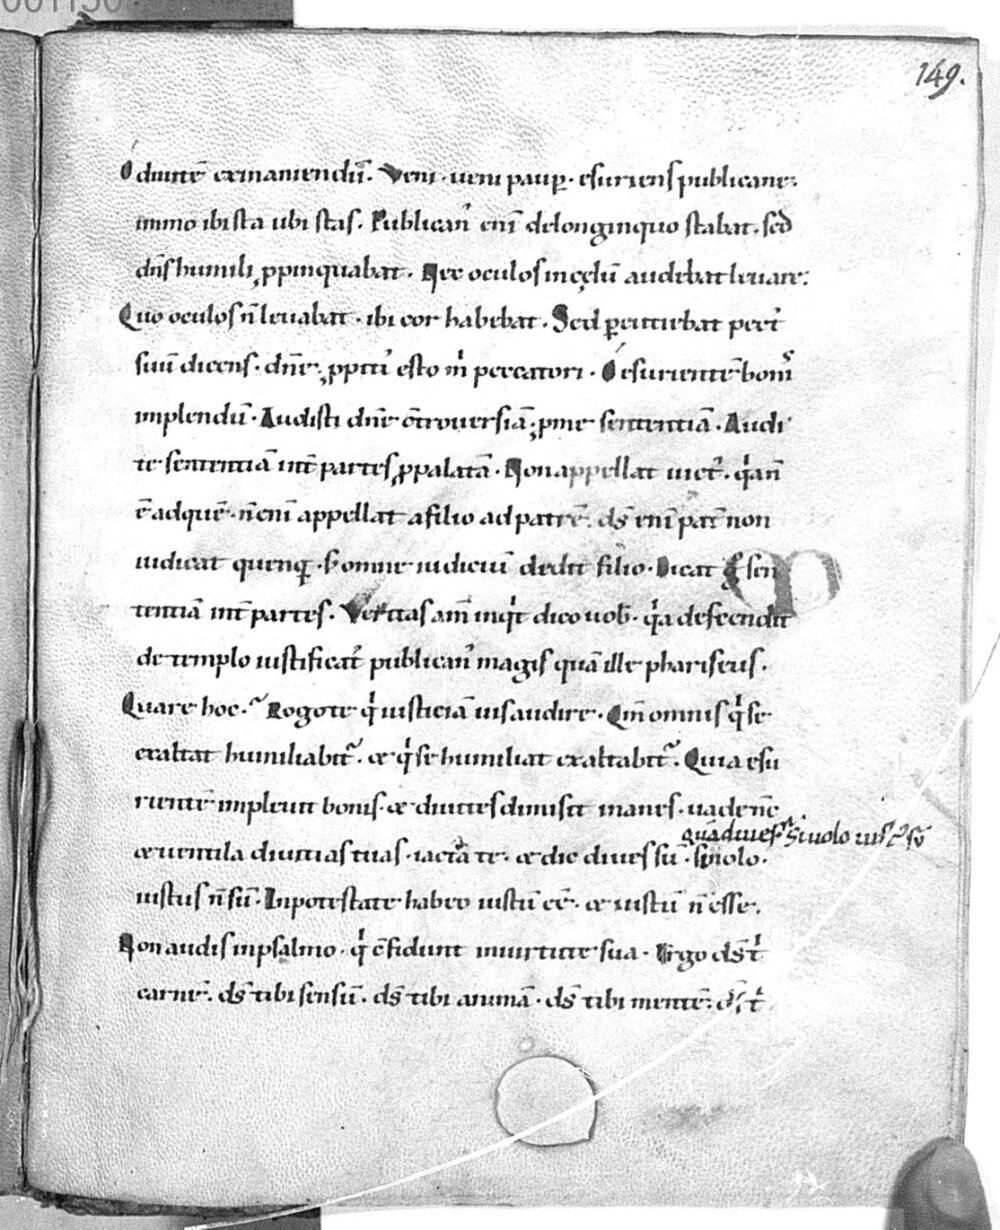 149.
O diuitē exinaniendū. Veni · ueni paup̱ · esuriens publicane:
immo ibi sta ubi stas. Publican᷒ enī delonginquo stabat. sed
dn̄s humili ꝓpinquabat. Nec oculos in cęlū audebat leuare:
Quo oculos n̄ leuabat · ibi cor habebat. Sed ꝑcutiebat pect᷒
suū dicens · dn̄e ꝓpiti᷒ esto m̍ peccatori. O esurientē bonis
implendū. Audisti dn̄e c̄trouersiā; ꝓme sententiā. Audi
te sententiā int̄ partes ꝓpalatā. Non appellat uict᷒. q̍a n̄
ē ad quē. n̄ enī appellat a filio ad patrē. ds̄ enī pat̄ non
iudicat quenq̨ · s; omne iudiciū dedit filio. Dicat g̊ sen
tentiā int̄ partes. Veritas am̄ inq̍t dico uob̄. q̍a descendit
de templo iustificat᷒ publican᷒ magis quā ille phariseus.
Quare hoc. Rogo te q̍ iusticiā uis audire. Qm̄ omnis q̍ se
exaltat humiliabit᷑. & q̍ se humiliat exaltabit᷑. Quia esu
rientē impleuit bonis. & diuites dimisit inanes. uade n̄c
quā diues
si uolo ius
& uentila diuitias tuas. iacta te. & dic diues sū. si nolo.
iustus n̄ sū. In potestate habeo iustū eē. & iustū n̄ esse.
Non audis in psalmo. q̍ c̄fidunt in uirtute sua. Ergo ds̄ t̍
carnē. ds̄ tibi sensū. ds̄ tibi animā. ds̄ tibi mentē. ds̄ t̍